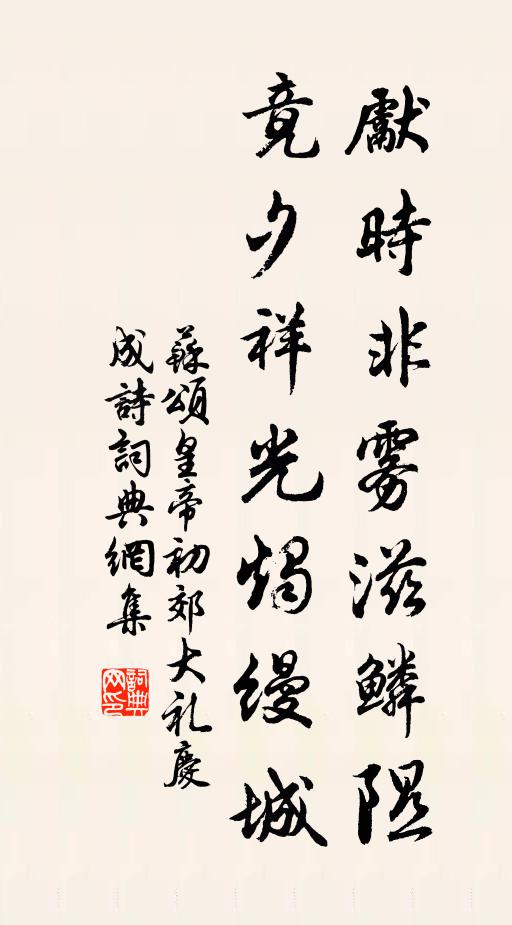 獻時非雾滋鱗隰
竟夕祥光燭縵城
蘇頌皇帝初郊大礼慶
成詩詞典網集
詞典
网印